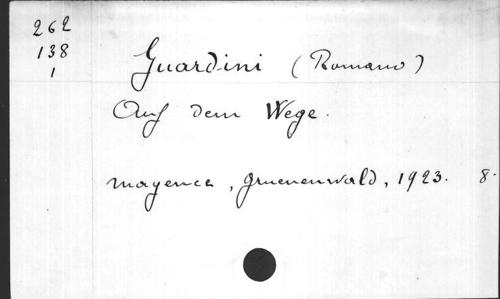 262
138
1
Guardini (Romano)
Auf dem Wege.
Mayence, Gruenenwald, 1923. 8.